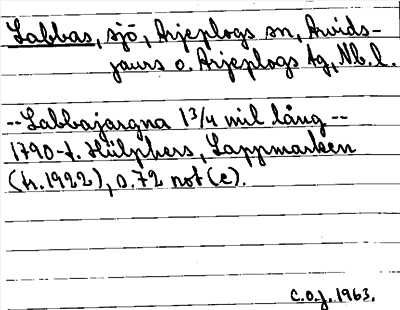 Labbas, sjö, Arjeplogs sn, Arvids-
jaurs o. Arjeplogs tg, Nb. l.
--Labbajaregna 1 3/4 mil lång--
1790-t. Hülphers, Lappmarken
(tr. 1922), s. 72 not (e).
C.O.J. 1963.